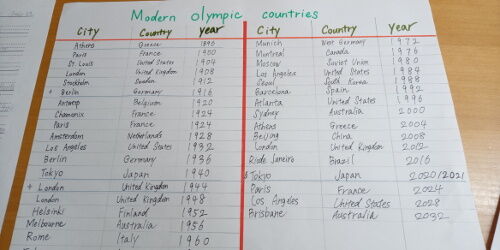 Modern olympic countries
City Country Year
Athens Greece 1896
Paris France 1900
St. Louis United States 1904
London United Kingdom 1908
Stockholm Sweden 1912
Berlin Germany 1916
Antwerp Belgium 1920
Chamonix France 1924
Paris France 1924
Amsterdam Netherlands 1928
Los Angeles United States 1932
Berlin Germany 1936
Tokyo Japan 1940
+ London United Kingdom 1944
London United Kingdom 1948
Helsinki Finland 1952
Melbourne Australia 1956
Rome Italy 1960
City Country Year
Munich West Germany 1972
Montreal Canada 1976
Moscow Soviet Union 1980
Los Angeles United States 1984
Seoul South Korea 1988
Barcelona Spain 1992
Atlanta United States 1996
Sydney Australia 2000
Athens Greece 2004
Beijing China 2008
London United Kingdom 2012
Rio de Janeiro Brazil 2016
Tokyo Japan 2020/2021
Paris France 2024
Los Angeles United States 2028
Brisbane Australia 2032